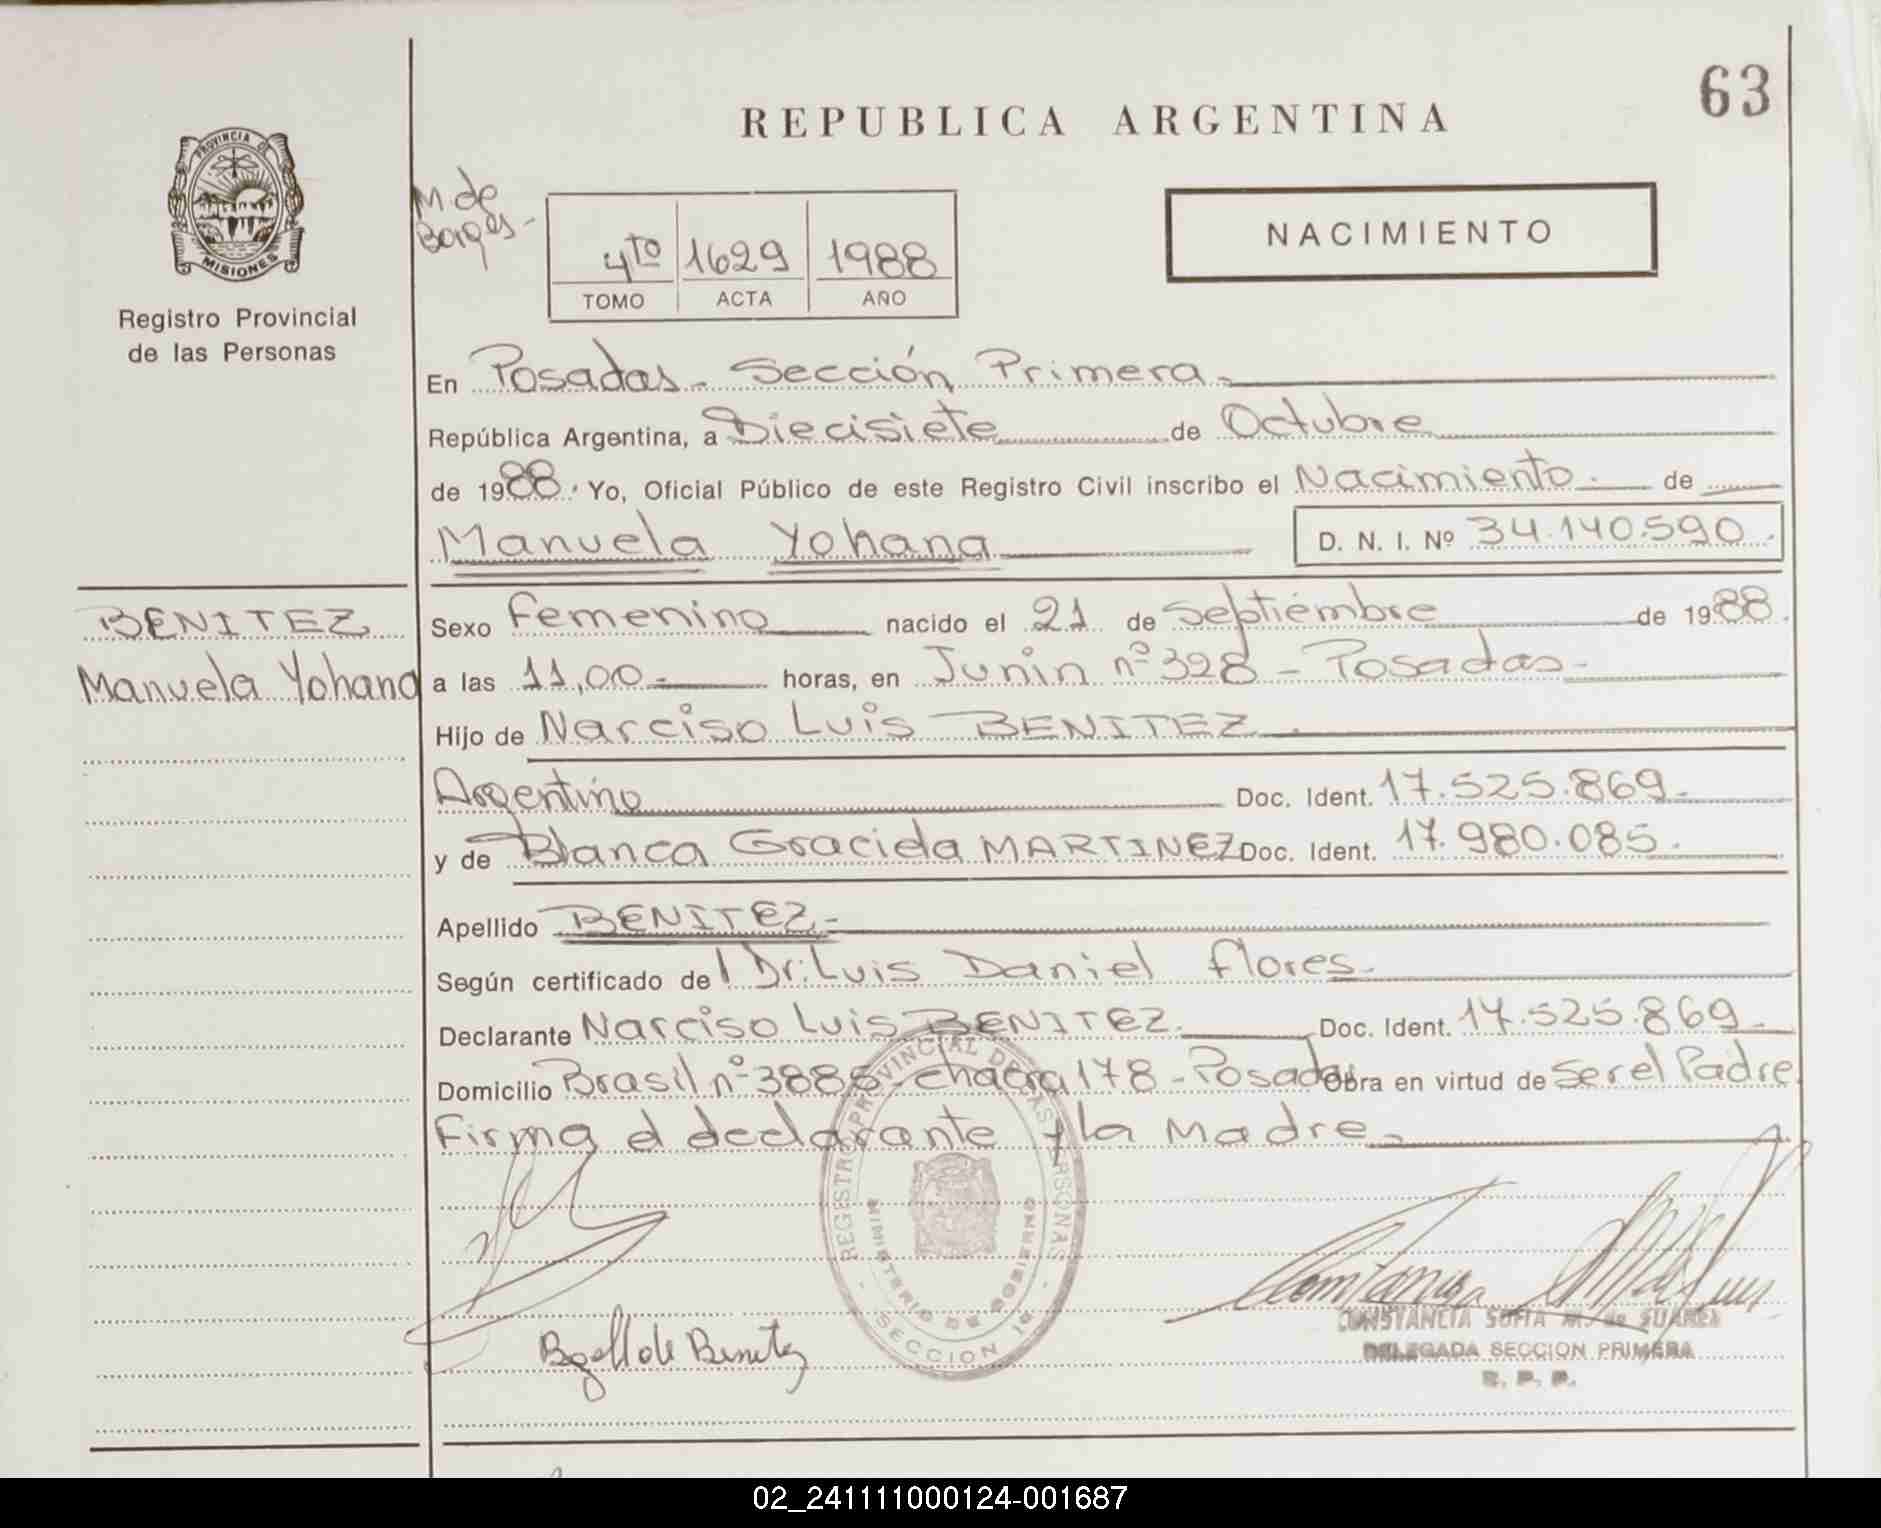 63
REPUBLICA ARGENTINA
PROVINCIA DE
MISIONES
Registro Provincial
de las Personas
M. de
4to 1629 1988
TOMO ACTA AÑO
NACIMIENTO
En Posadas - Sección Primera.
República Argentina, a Diecisiete de Octubre
de 1988. Yo, Oficial Público de este Registro Civil inscribo el Nacimiento de
Manuela Yohana D. N. I. Nº 34.140.590.
BENITEZ
Manuela Yohana
Sexo Femenino nacido el 21 de Septiembre de 1988.
a las 11,00 horas, en Junin nº 328 - Posadas -
Hijo de Narciso Luis BENITEZ
Argentino Doc. Ident. 17.525.869.
y de Blanca Graciela MARTINEZ Doc. Ident. 17.980.085.
Apellido BENITEZ -
Según certificado del Dr: Luis Daniel Flores.
Declarante Narciso Luis BENITEZ. Doc. Ident. 17.525.869.
Domicilio Brasil nº 3886 - chacra 178 - Posadas Obra en virtud de Ser el Padre
Firma el declarante y la Madre.
REGISTRO PROVINCIAL DE LAS PERSONAS
MINISTERIO DE GOBIERNO
SECCION 1ª
de Benitez
CONSTANCIA SOFIA M. de SUAREZ
DELEGADA SECCION PRIMERA
R. P. P.
02_241111000124-001687